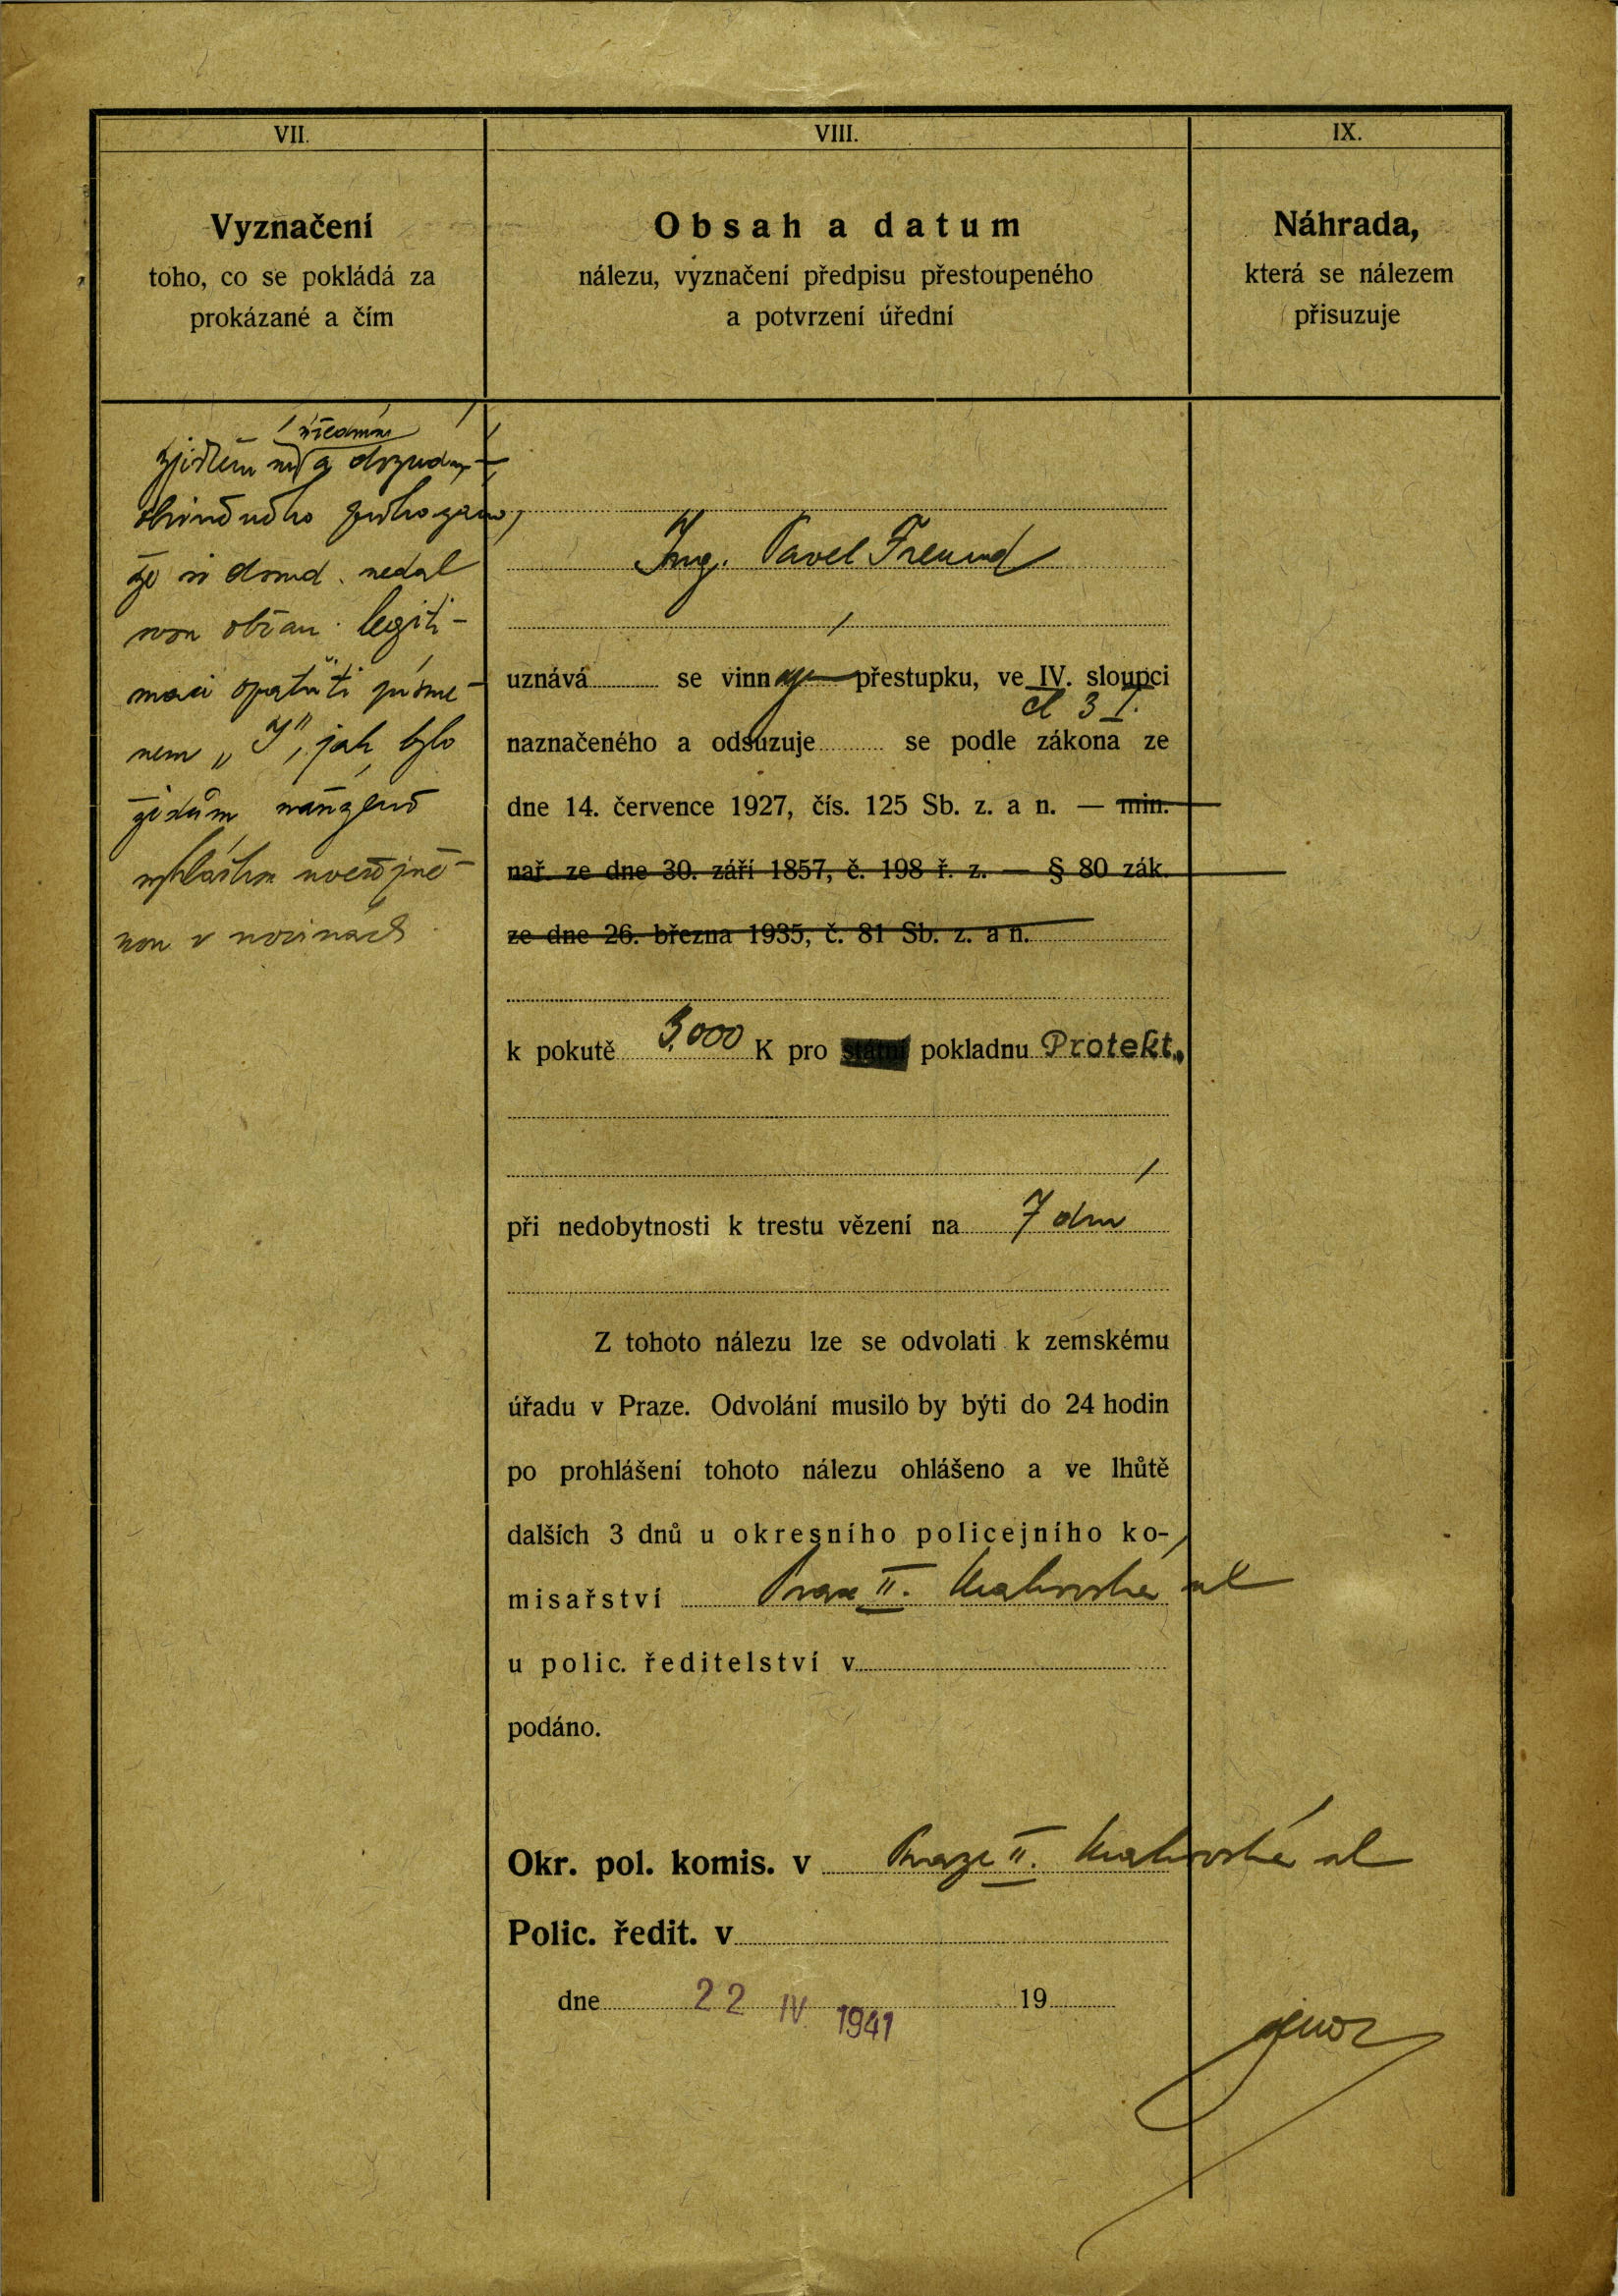 VII.
Vyznačení
toho, co se pokládá za
prokázané a čím
úředním
zjištěním a doznáním
obviněného prokázáno,
že si dosud nedal
svou občan. legiti-
maci opatřiti písme-
nem „J", jak bylo
židům nařízeno
vyhláškou uveřejně-
nou v novinách
VIII.
Obsah a datum
nálezu, vyznačení předpisu přestoupeného
a potvrzení úřední
Ing. Pavel Freund
uznává se vinným přestupku, ve IV. sloupci
čl 3 I.
naznačeného a odsuzuje se podle zákona ze
dne 14. července 1927, čís. 125 Sb. z. a n. — min.
nař. ze dne 30. září 1857, č. 198 ř. z. — § 80 zák.
ze dne 26. března 1935, č. 81 Sb. z. a n.
k pokutě 5.000 K pro státní pokladnu Protekt.
při nedobytnosti k trestu vězení na 7 dnů
Z tohoto nálezu lze se odvolati k zemskému
úřadu v Praze. Odvolání musilo by býti do 24 hodin
po prohlášení tohoto nálezu ohlášeno a ve lhůtě
dalších 3 dnů u okresního policejního ko-
misařství Praze II. Krakovská ul
u polic. ředitelství v
podáno.
Okr. pol. komis. v Praze II. Krakovská ul
Polic. ředit. v
dne 22 IV. 1941 19
IX.
Náhrada,
která se nálezem
přisuzuje